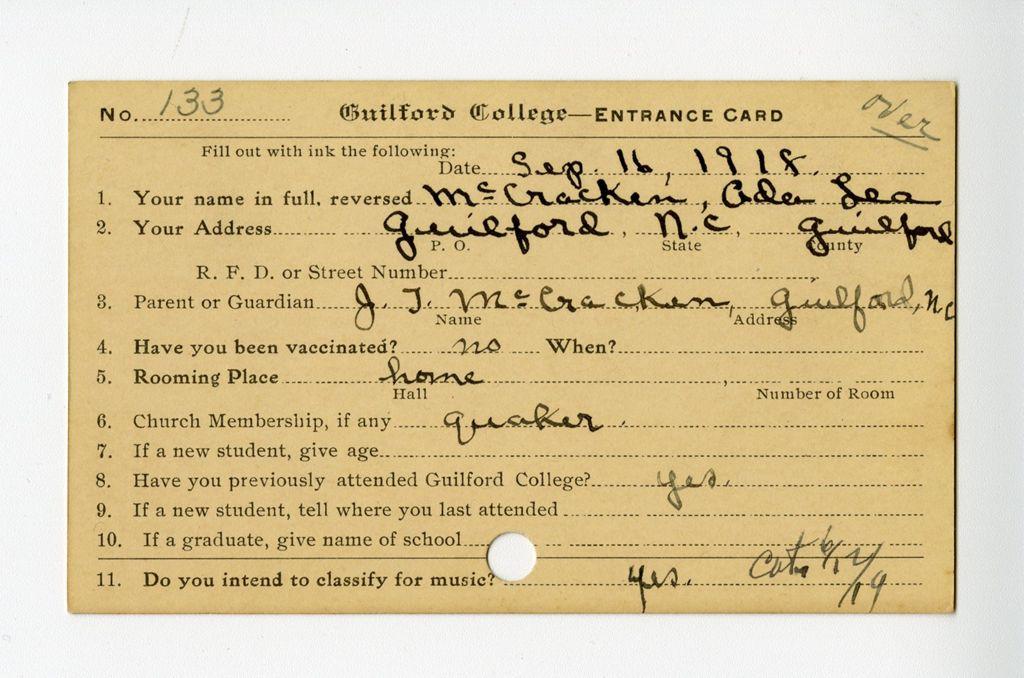 No. 133 Guilford College—ENTRANCE CARD over
Fill out with ink the following:
Date Sep. 16, 1918.
1. Your name in full, reversed McCracken, Ada Lea
2. Your Address Guilford, N.C, Guilford
P. O. State County
R. F. D. or Street Number
3. Parent or Guardian J. T. McCracken, Guilford, N.C
Name Address
4. Have you been vaccinated? no When?
5. Rooming Place home
Hall Number of Room
6. Church Membership, if any Quaker.
7. If a new student, give age
8. Have you previously attended Guilford College? yes.
9. If a new student, tell where you last attended
10. If a graduate, give name of school
11. Do you intend to classify for music? yes.